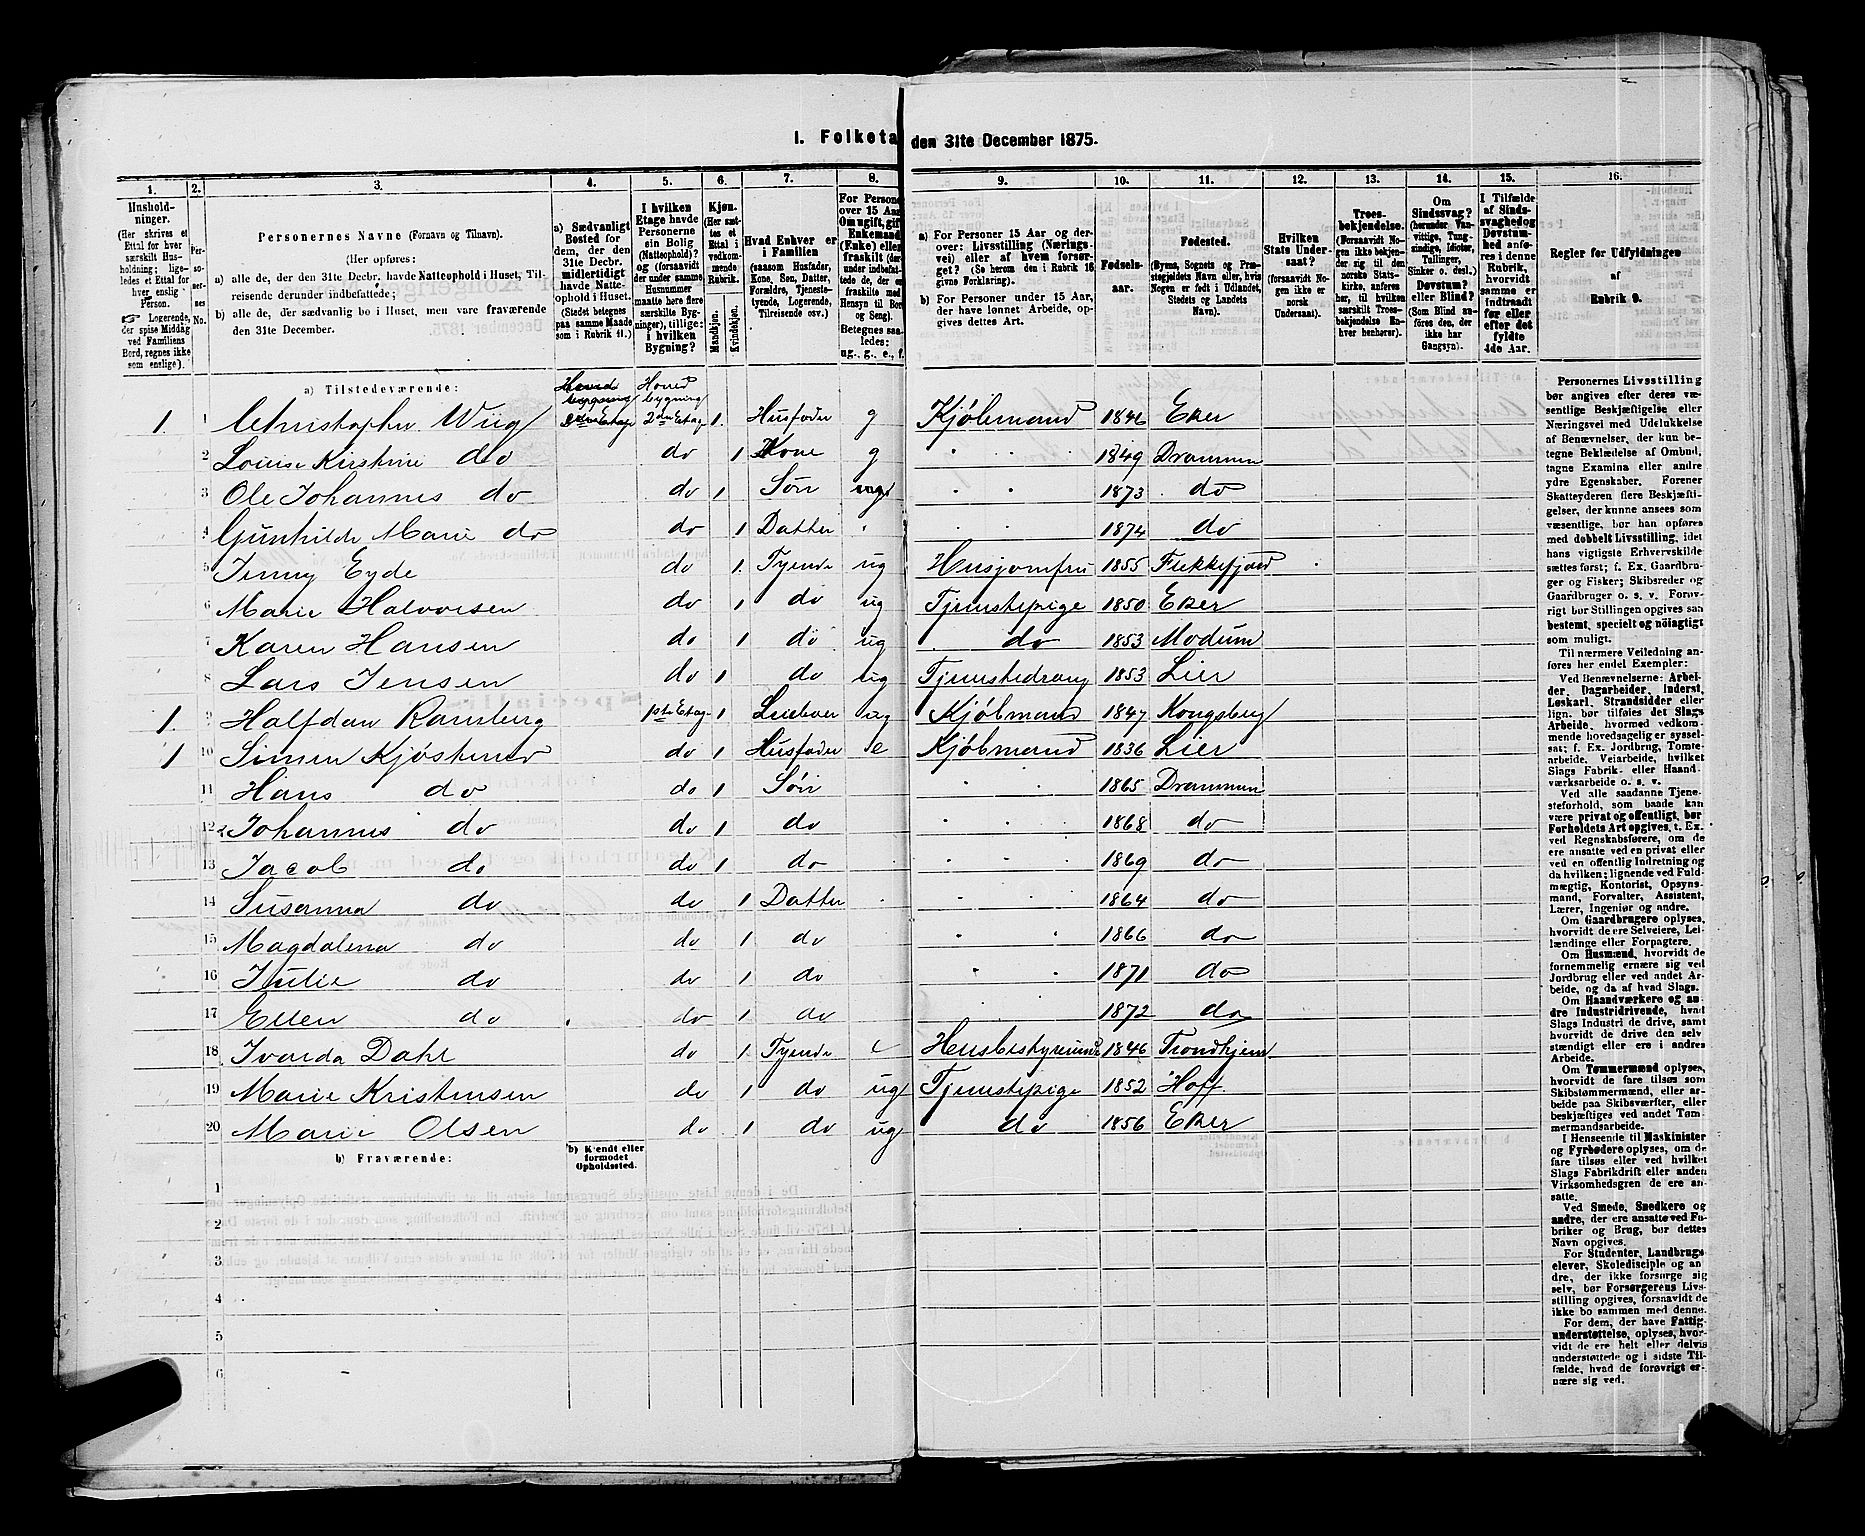 I. Folketa den 31te December 1875.
1. 2. 3. 4. 5. 6. 7. 8. 9. 10. 11. 12. 13. 14. 15. 16.
Hushold-
ninger.
(Her skrives et
Ettal for hver
særskilt Hus-
holdning; lige-
ledes et Ettal for
hver enslig
Person.
☞ Logerende,
der spise Middag
ved Familiens
Bord, regnes ikke
som enslige).
Per-
so-
ner-
nes
No.
Personernes Navne (Fornavn og Tilnavn).
(Her opføres:
a) alle de, der den 31te Decbr. havde Natteophold i Huset, Til-
reisende derunder indbefattede;
b) alle de, der sædvanlig bo i Huset, men vare fraværende
den 31te December.
a) Sædvanligt
Bosted for
dem, der den
31te Decbr.
midlertidigt
havde Natte-
ophold i Huset.
(Stedet betegnes
paa samme Maade
som i Rubrik 11.)
I hvilken
Etage havde
Personerne
sin Bolig
(Natteophold)?
og (forsaavidt
der under samme
Husnummer
maatte høre flere
særskilte Byg-
ninger), tillige:
i hvilken
Bygning?
Kjøn.
(Her sæt-
tes et
Ettal i
vedkom-
mende
Rubrik.)
Mandkjøn.
Kvindekjøn.
Hvad Enhver er
i Familien
(saasom Husfader,
Kone, Søn, Datter,
Forældre, Tjeneste-
tyende, Logerende,
Tilreisende osv.)
For Persone
over 15 Aar
Om ugift, gift
Enkemand
(Enke) eller
fraskilt (der
under indbefat-
tede de, der er
fraskilte med
Hensyn til Bor
og Seng).
Betegnes saa-
ledes:
ug. g., e., f.
a) For Personer 15 Aar og der-
over: Livsstilling (Nærings-
vei) eller af hvem forsør-
get? (Se herom den i Rubrik 16
givne Forklaring).
b) For Personer under 15 Aar,
der have lønnet Arbeide, op-
gives dettes Art.
Fødsels-
aar.
Fødested.
(Byens, Sognets og Præ-
stegjeldets Navn eller, hvis
Nogen er født i Udlandet,
Stedets og Landets
Navn).
Hvilken
Stats Under-
saat?
(forsaavidt No-
gen ikke er
norsk
Undersaat).
Troes-
bekjendelse.
(Forsaavidt No-
gen ikke bekjen-
der sig til den
norske Stats-
kirke, anføres
her, til hvilken
særskilt Troes-
bekjendelse En-
hver henhører).
Om
Sindssvag?
(herunder Van-
vittige, Tung-
sindige, Idioter,
Tullinger,
Sinker o. desl.)
Døvstum?
eller Blind?
(Som Blind an-
føres den, der
ikke har
Gangsyn).
I Tilfælde
af Sinds-
svaghed og
Døvstum-
hed anfø-
res i denne
Rubrik,
hvorvidt
samme er
indtraadt
før eller
efter det
fyldte
4de Aar.
Regler for Udfyldningen
af
Rubrik 9.
a) Tilstedeværende:
1. 1 Christopher Wiig Hovedbygning 2den Etage Hovedbygning 2den Etage 1. Husfader g Kjøbmand 1846 Eker
2 Louise Kirstine do do 1 Kone g 1849 Drammen
3 Ole Johannes do do 1 Søn 1873 do
4 Gunhilde Marie do do 1 Datter 1874 do
5 Jenny Eyde do 1. Tyende ug Husjomfru 1855 Flekkefjord
6 Marie Halvorsen do 1 do ug Tjenstepige 1850 Eker
7 Karen Hansen do 1 do ug do 1853 Modum
8 Lars Jensen do 1 do ug Tjenstedreng 1853 Lier
1. 9 Halfdan Ramberg 1ste Etage 1 ug Kjøbmand 1847 Kongsberg
1 10 Simen Kjøsterud do 1 Husfader e Kjøbmand 1836 Lier
11 Hans do do 1 Søn 1865 Drammen
12 Johannes do do 1 do 1868 do
13 Jacob do do 1 do 1869 do
14 Susanna do do 1 Datter 1864 do
15 Magdalena do do 1 do 1866 do
16 Julie do do 1 do 1871 do
17 Ellen do do 1 do 1872 do
18 Ivarda Dahl do 1 Tyende Husbestyrerinde 1846 Trondhjem
19 Marie Kristensen do 1 do ug Tjenstepige 1852 Hoff
20 Marie Olsen do 1 do ug do 1856 Eker
b) Fraværende:
b) Kjendt eller
formodet
Opholdssted.
1
2
3
4
5
6
Personernes Livsstilling
bør angives efter deres væ-
sentlige Beskjæftigelse eller
Næringsvei med Udelukkelse
af Benævnelser, der kun be-
tegne Beklædelse af Ombud,
tagne Examina eller andre
ydre Egenskaber. Forener
Skatteyderen flere Beskjæfti-
gelser, der kunne ansees som
væsentlige, bør han opføres
med dobbelt Livsstilling, idet
hans vigtigste Erhvervskilde
sættes først; f. Ex. Gaardbru-
ger og Fisker; Skibsreder og
Gaardbruger o. s. v. Forøv-
rigt bør Stillingen opgives saa
bestemt, specielt og nøiagtigt
som muligt.
Til nærmere Veiledning an-
føres her endel Exempler:
Ved Benævnelserne: Arbei-
der, Dagarbeider, Inderst,
Løskarl, Strandsidder eller
lign. bør tilføies det Slags
Arbeide, hvormed vedkom-
mende hovedsagelig er syssel-
sat; f. Ex. Jordbrug, Tomte-
arbeide. Veiarbeide, hvilket
Slags Fabrik- eller Haand-
værksarbeide o. s. v.
Ved alle saadanne Tjene-
steforhold, som baade kan
være privat og offentligt, bør
Forholdets Art opgives, t. Ex.
ved Regnskabsførere, om de
ere ansatte ved en privat eller
ved en offentlig Indretning og
da hvilken; lignende ved Fuld-
mægtig, Kontorist, Opsyns-
mand, Forvalter, Assistent,
Lærer, Ingeniør og andre.
Om Gaardbrugere oplyses,
hvorvidt de ere Selveiere, Lei-
lændinge eller Forpagtere.
Om Husmænd, hvorvidt de
fornemmelig ernære sig ved
Jordbrug eller ved andet Ar-
beide, og da af hvad Slags.
Om Haandværkere og an-
dre Industridrivende, hvad
Slags Industri de drive, samt
hvorvidt de drive den selv-
stændigt eller ere i andres
Arbeide.
Om Tømmermænd oplyses,
hvorvidt de fare tilsøs som
Skibstømmermænd, eller ar-
beide paa Skibsværfter, eller
beskjæftiges ved andet Tøm-
mermandsarbeide.
I Henseende til Maskinister
og Fyrbødere oplyses, om de
fare tilsøs eller ved hvilket
Slags Fabrikdrift eller anden
Virksomhedsgren de ere an-
satte.
Ved Smede, Snedkere og
andre, der ere ansatte ved Fa-
briker og Brug, bør dettes
Navn opgives.
For Studenter, Landbrugs-
elever, Skoledisciple og an-
dre, der ikke forsørge sig
selv, bør Forsørgerens Livs-
stilling opgives, forsaavidt de
ikke bo sammen med denne.
For dem, der have Fattig-
understøttelse, oplyses, hvor-
vidt de ere helt eller delvis
understøttede og i sidste Til-
fælde, hvad de forøvrigt er-
nære sig ved.